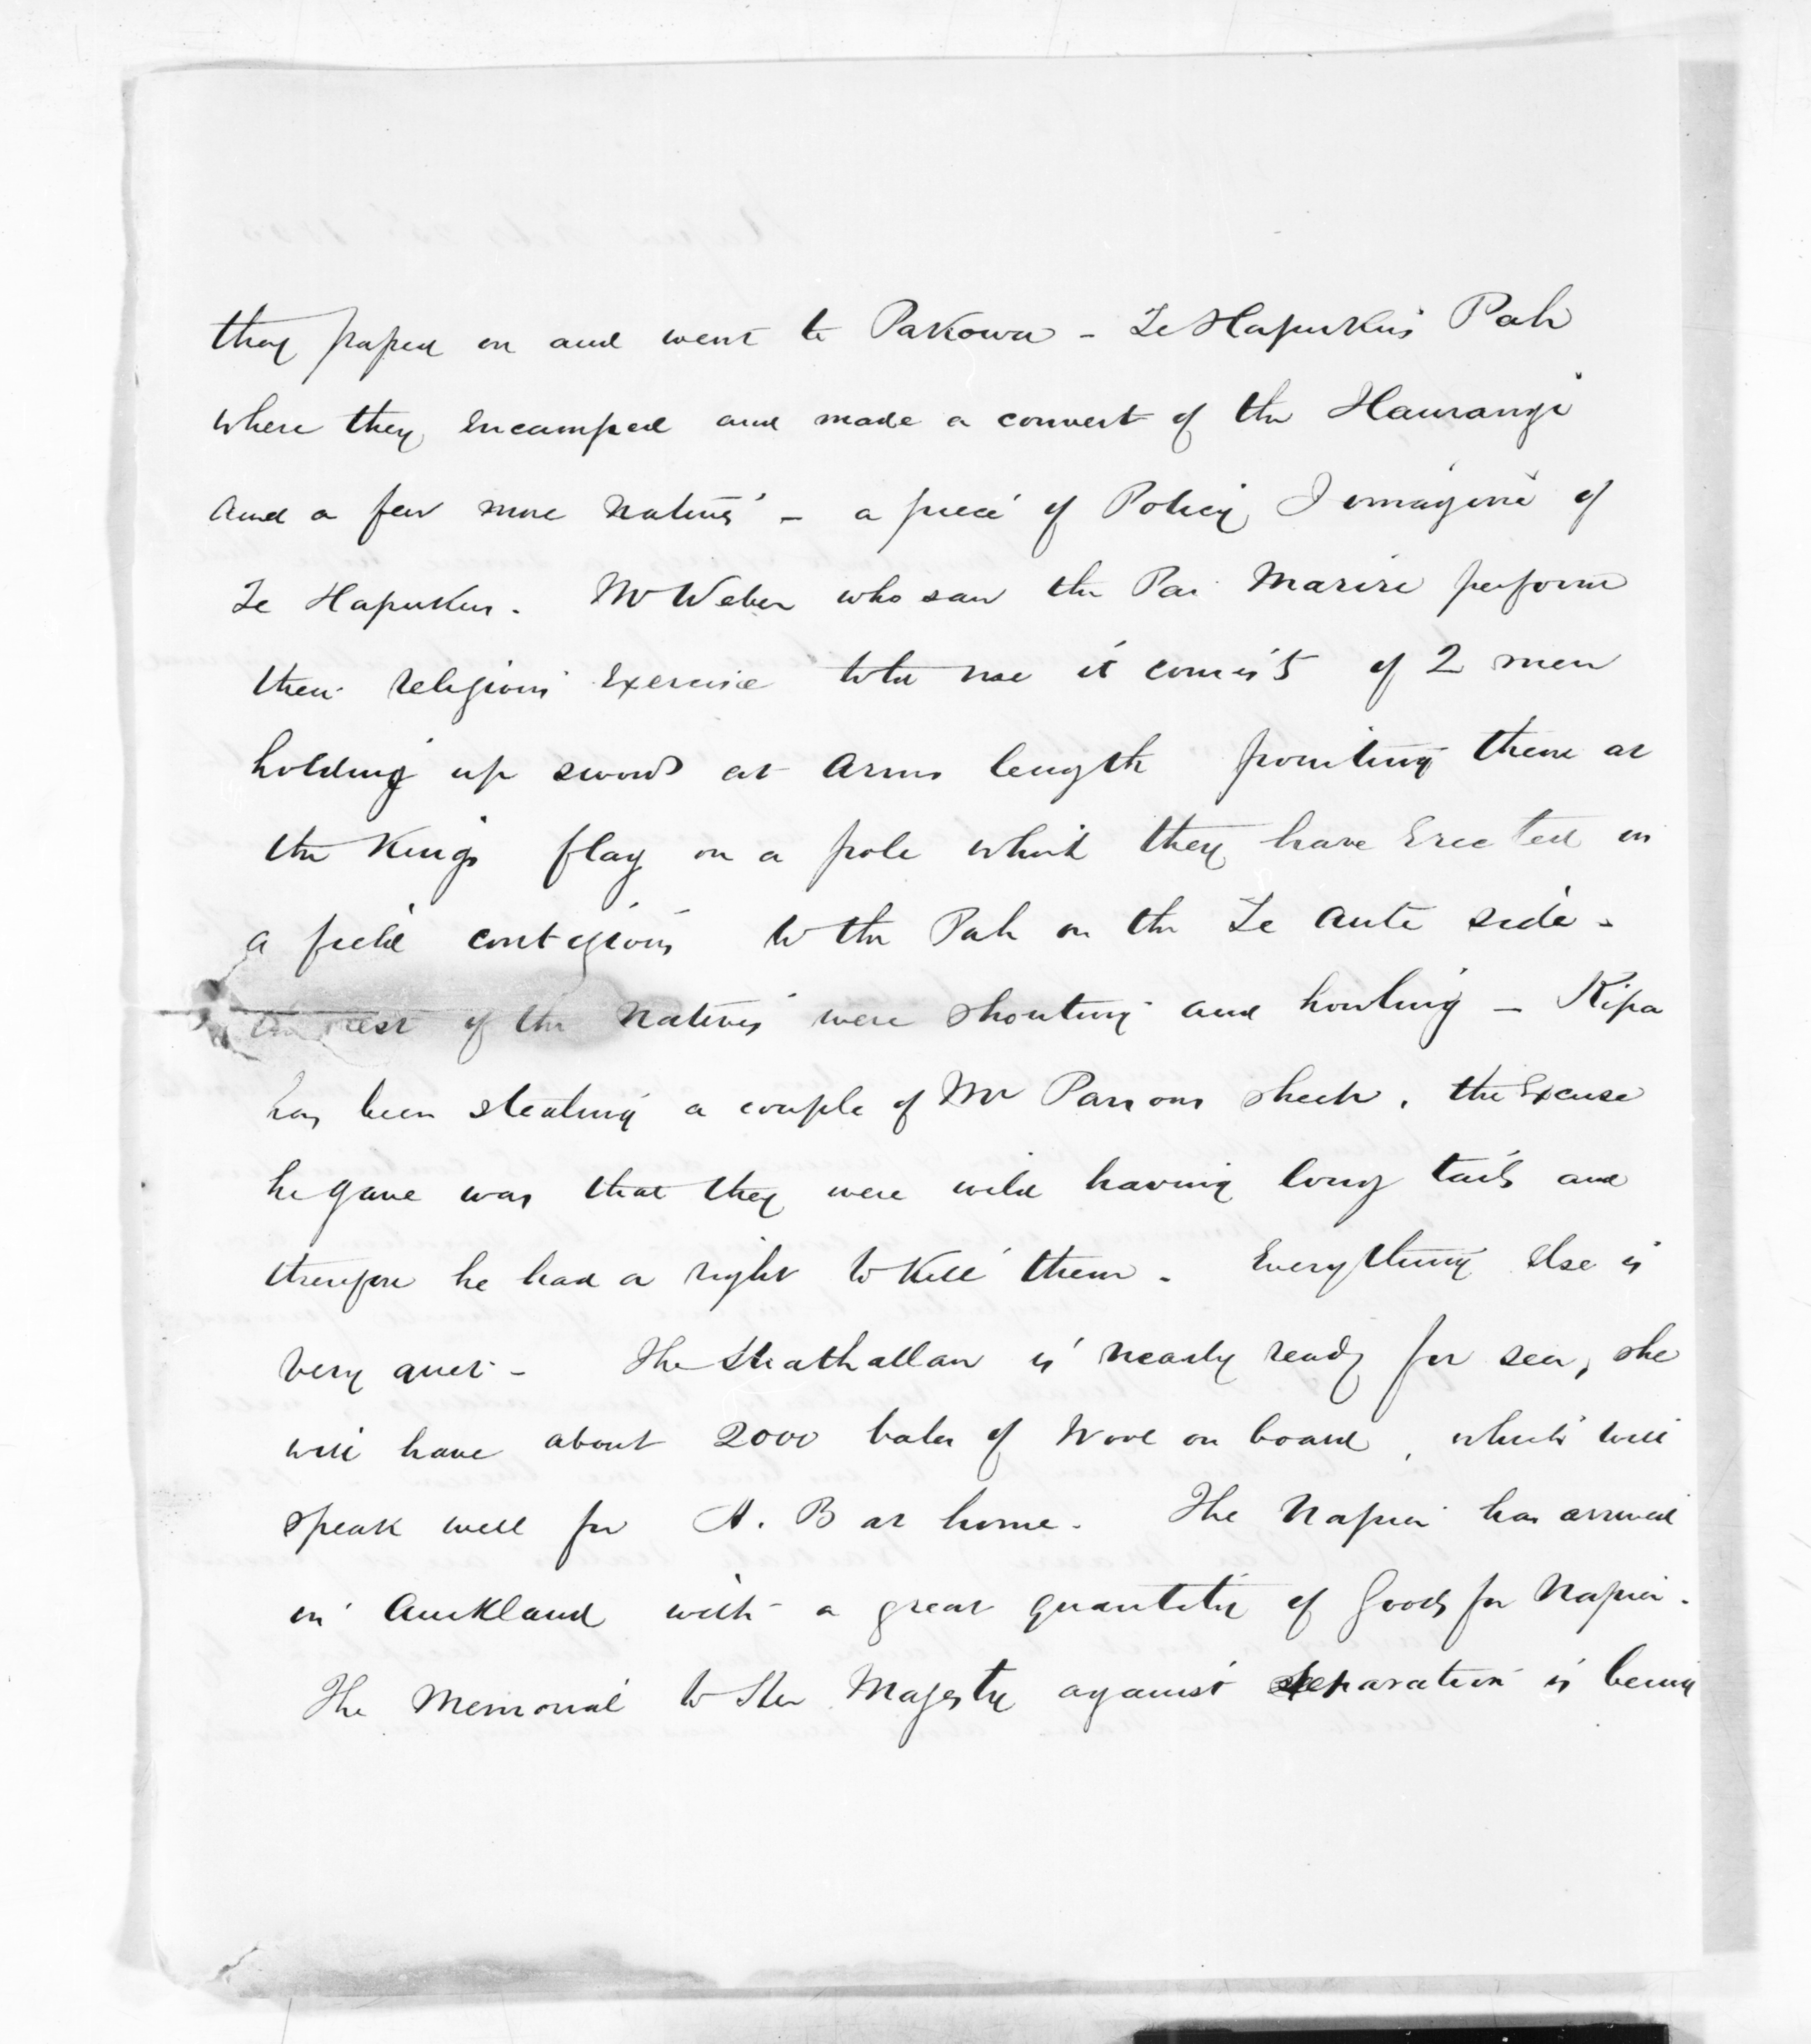 they passed on and went to Pakowa - Te Hapukus Pah
where they encamped and made a convert of the Haurangi
and a few more natives - a piece of Policy I imagine of
Te Hapukus. Mr Weber who saw the Pai Marire perform
their religious exercise told me it consists of 2 men
holding up swords at arms length pointing them at
the Kings flag on a pole which they have erected in
a field contigious to the Pah on the Te Aute side -
the rest of the natives were shouting and howling - Kipa
has been stealing a couple of Mr Parsons sheep, the excuse
he gave was that they were wild having long tails and
therefore he had a right to kill them. Everything else is
very quiet - The Strathallan is nearly ready for sea, she
will have about 2000 bales of Wool on board, which will
speak well for H. B at home. The Napier has arrived
in Auckland with a great quantity of Goods for Napier.
The Memorial to Her Majesty against separation is being